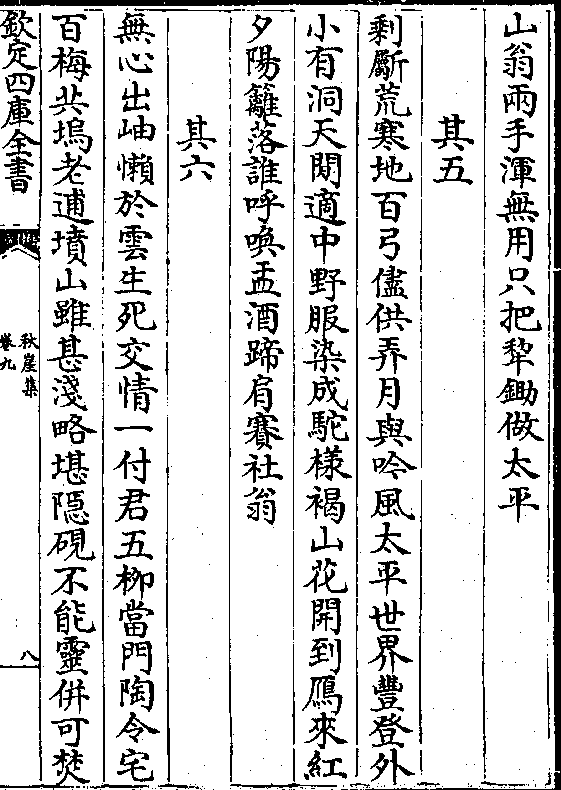 山翁兩手渾無用只把犁鋤做太平
其五
剩斸荒寒地百弓儘供弄月與吟風太平世界豐登外
小有洞天閒適中野服染成駝様褐山花開到鴈來紅
夕陽籬落誰呼喚盂酒蹄肩賽社翁
其六
無心出岫懶於雲生死交情一付君五柳當門陶令宅
百梅共塢老逋墳山雖甚淺略堪隠硯不能靈併可焚
欽定四庫全書
秋崖集
卷九
八